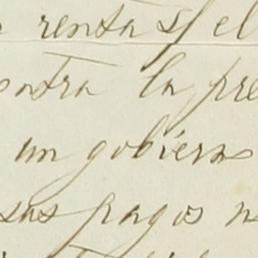 rentas el
contra la pre
un gobierno
sus pagos n